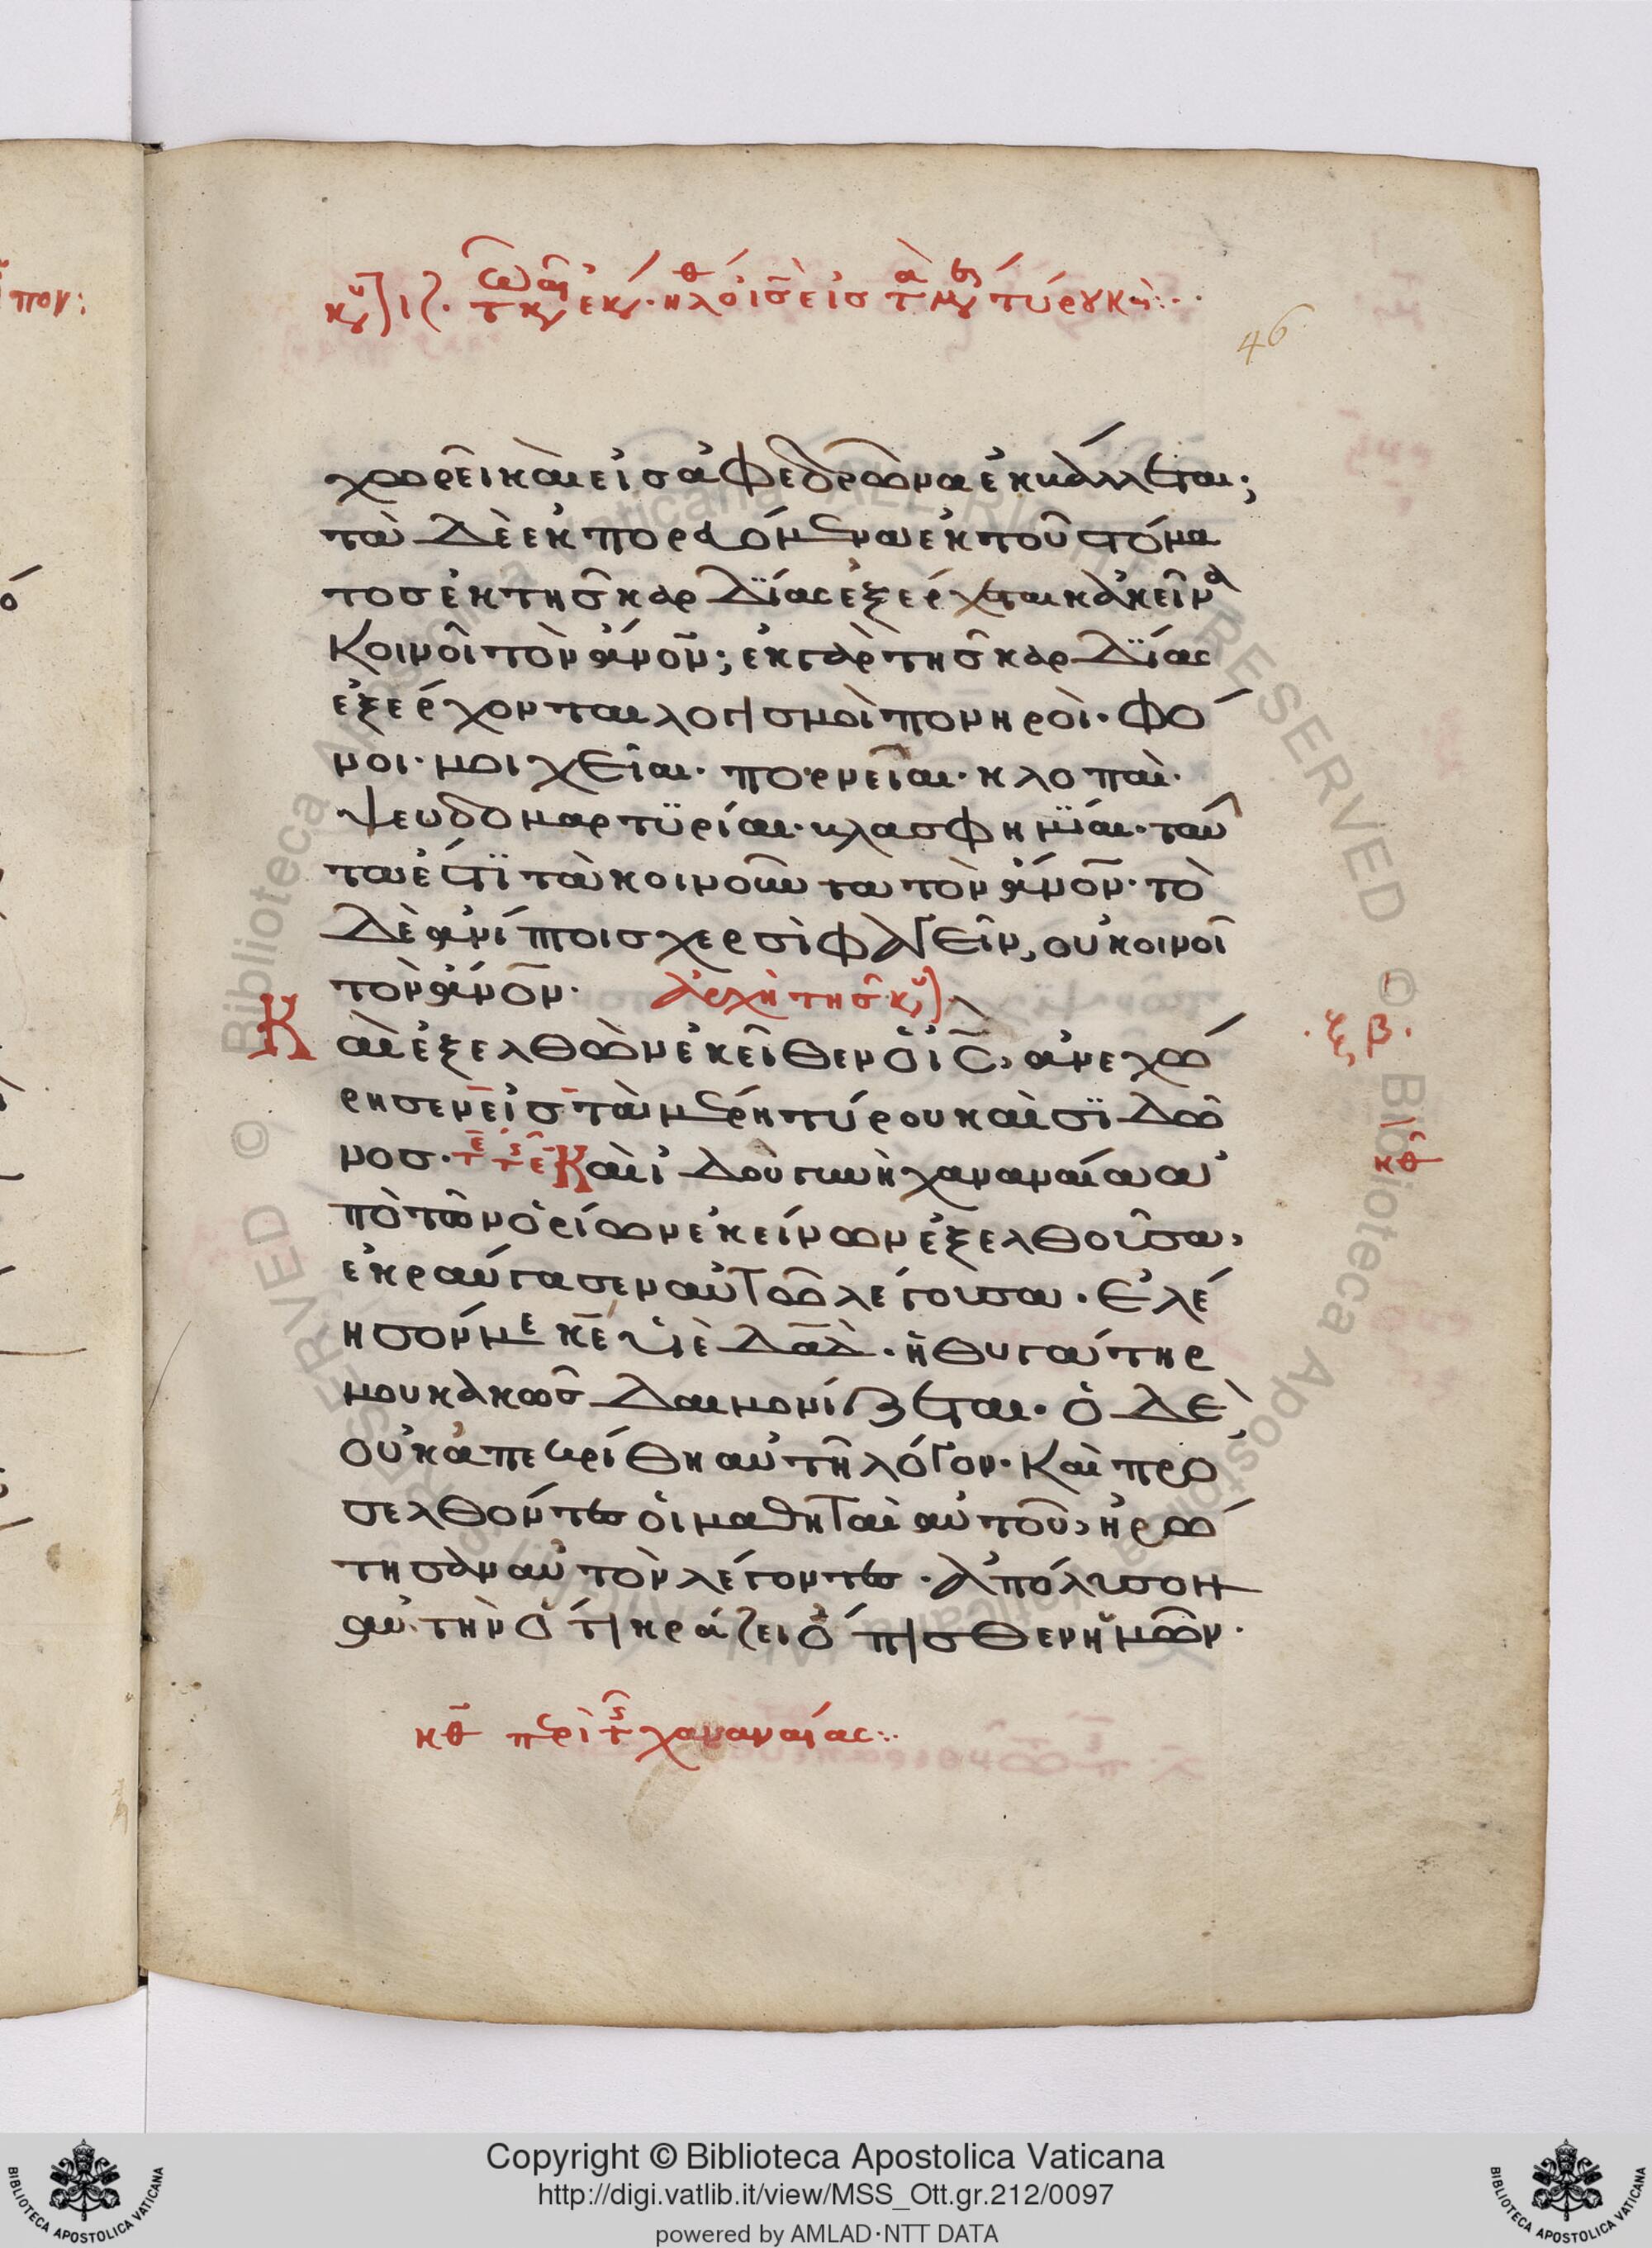 46
χωρεῖ καὶ εἰς ἀφεδρῶνα ἐκβάλλεται;
τὰ δὲ ἐκπορευόμενα ἐκ τοῦ στόμα
τος ἐκ τῆς καρδΐας ἐξέρχεται κἀκεῖνα
Κοινοῖ τὸν ἄνον; ἐκ γὰρ τῆς καρδΐας
ἐξέρχονται λογισμοὶ πονηροὶ· φό
νοι· μοιχεῖαι· πορνεῖαι· κλοπαὶ·
ψευδομαρτϋρίαι· βλασφημΐαι· ταῦ
τα ἐστϊ τὰ κοινοῦντα τὸν ἄνον· τὸ
δὲ ἀνίπτοις χερσὶ φαγεῖν, οὐ κοινοῖ
τὸν ἄνον· ἀρχὴ τῆς κυ
Καὶ ἐξελθὼν ἐκεῖθεν ὁ ις, ἀνεχώ
ρησεν εἰς τὰ μέρη τύρου καὶ σϊδῶ
νος· Καὶ ἰδοὺ γυνὴ χαναναία ἀ
πὸ τῶν ὁρίων ἐκείνων ἐξελθοῦσα,
ἐκραύγασεν αὐτῶ λέγουσα· Ἐλέ
ησόν με κε υἱὲ δαδ· ἡ θυγάτηρ
μου κακῶς δαιμονίζεται· ὁ δὲ
οὐκ ἀπεκρίθη αὐτῆ λόγον· Καὶ προ
σελθόντες οἱ μαθηταὶ αὐτοῦ, ἠρώ
τησαν αὐτὸν λέγοντες· Ἀπόλυσον
αὐτὴν ὅτι κράζει ὄπισθεν ἡμῶν·
·ξβ·
κθ
κθ περὶ τῆς χαναναίας:·
Copyright © Biblioteca Apostolica Vaticana
http://digi.vatlib.it/view/MSS_Ott.gr.212/0097
powered by AMLAD·NTT DATA